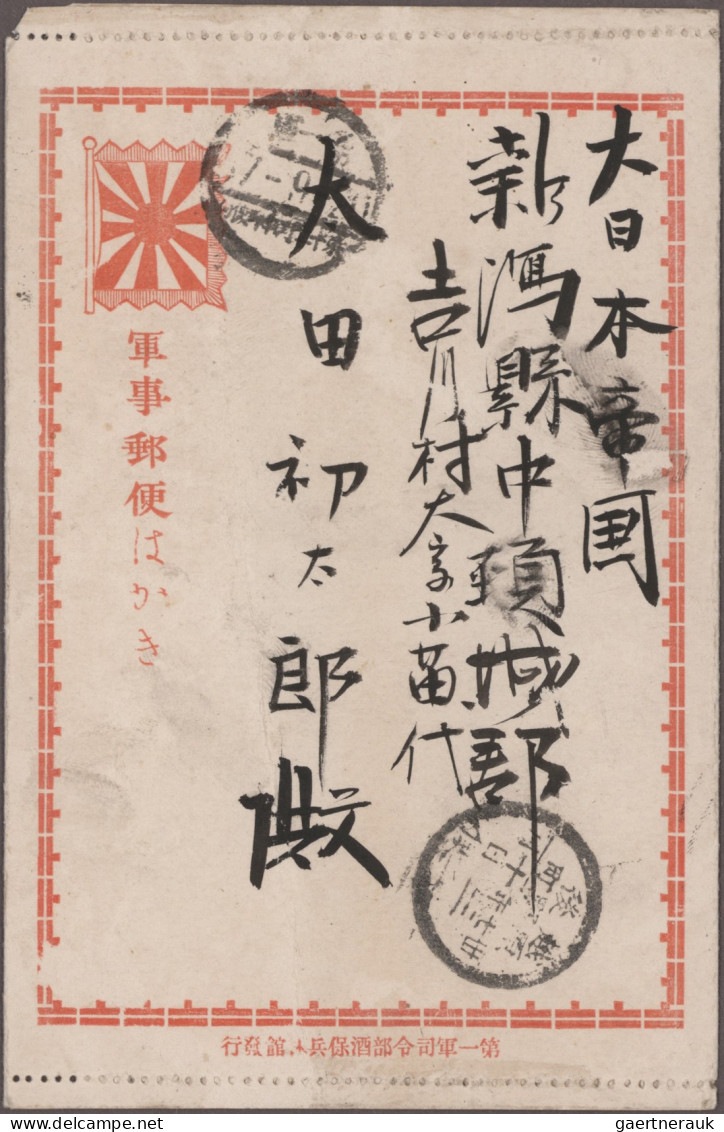 大日本帝国
新潟縣中頚城郡
吉川村大字小苗代
大田初太郎殿
軍事郵便はかき
行發舘木兵保酒部令司軍一第
gaertnerauk